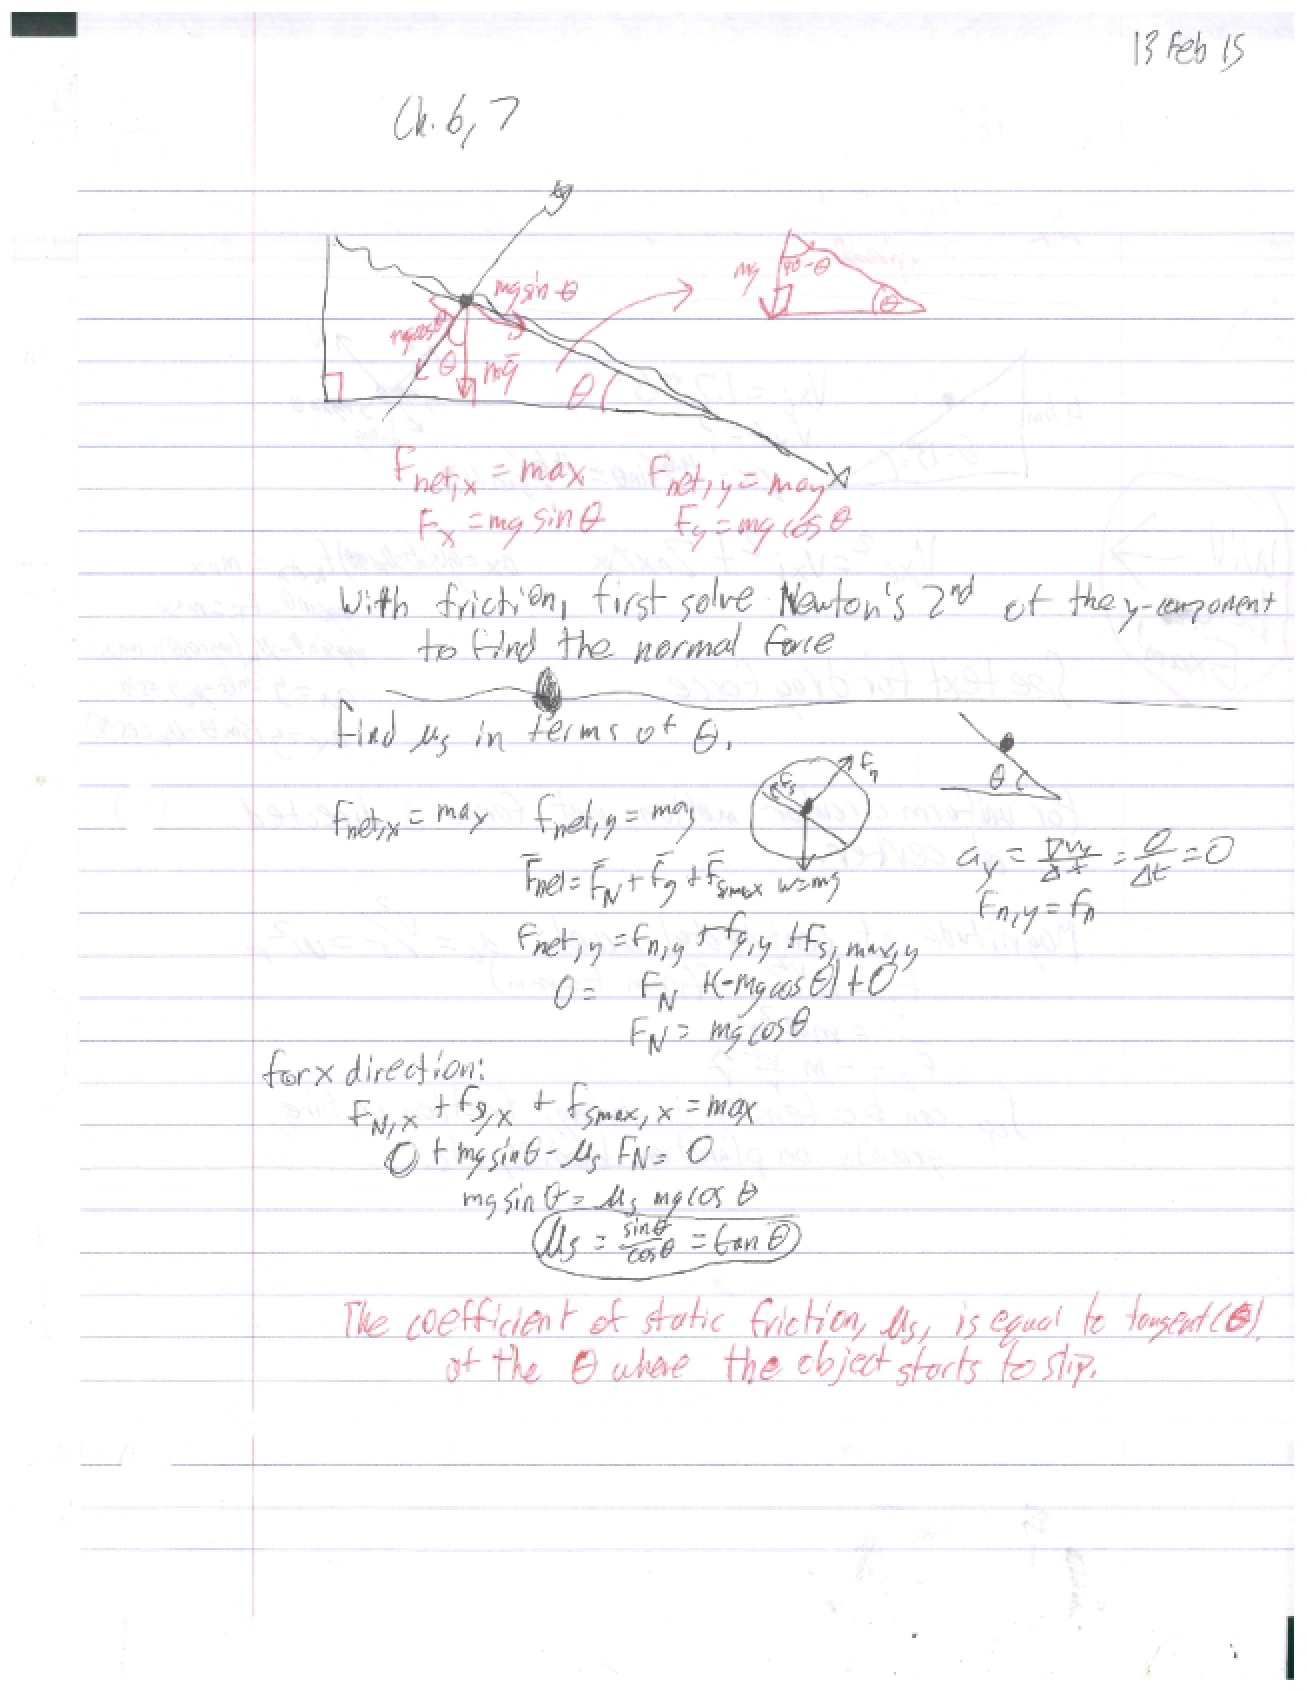 13 Feb 15
Ch. 6, 7
y
mg sin θ
mg cos θ
θ
mg
θ
mg
90-θ
θ
x
Fnet,x = max
Fnet,y = may
Fx = mg sin θ
Fy = mg cos θ
With friction, first solve Newton's 2nd of the y-component
to find the normal force
Find μs in terms of θ.
θ
Fs
Fn
w=mg
Fnet,x = max
Fnet,y = may
ay = Δvy/Δt = 0/Δt = 0
F̄net = F̄N + F̄g + F̄smax
Fn,y = Fn
Fnet,y = Fn,y + Fg,y + Fs,max,y
0 = FN +(-mg cos θ) + 0
FN = mg cos θ
For x direction:
FN,x + Fg,x + Fsmax,x = max
0 + mg sin θ - μs FN = 0
mg sin θ = μs mg cos θ
μs = sin θ/cos θ = tan θ
The coefficient of static friction, μs, is equal to tangent(θ).
of the θ where the object starts to slip.